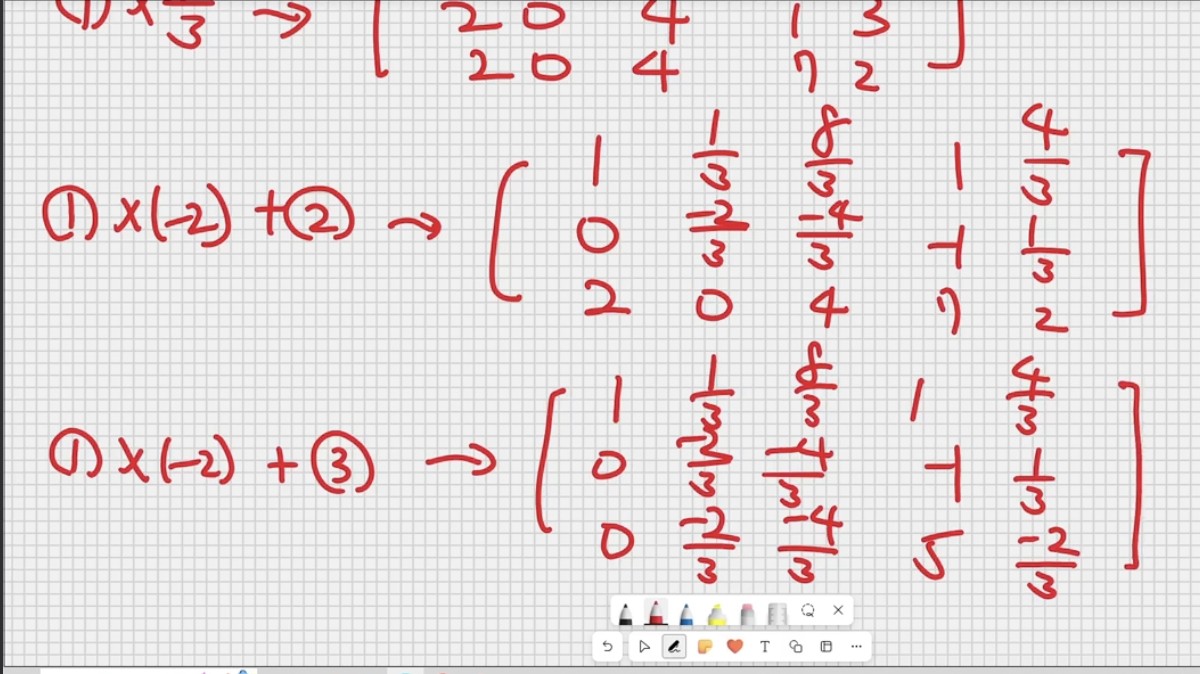 ① × 1/3 → [ 2 0 4 1 3
2 0 4 7 2 ]
① × (-2) + ② → [ 1 1/3 8/3 1 4/3
0 -2/3 -4/3 -1 1/3
2 0 4 7 2 ]
① × (-2) + ③ → [ 1 1/3 8/3 1 4/3
0 -2/3 -4/3 -1 1/3
0 -2/3 -4/3 5 -2/3 ]
T